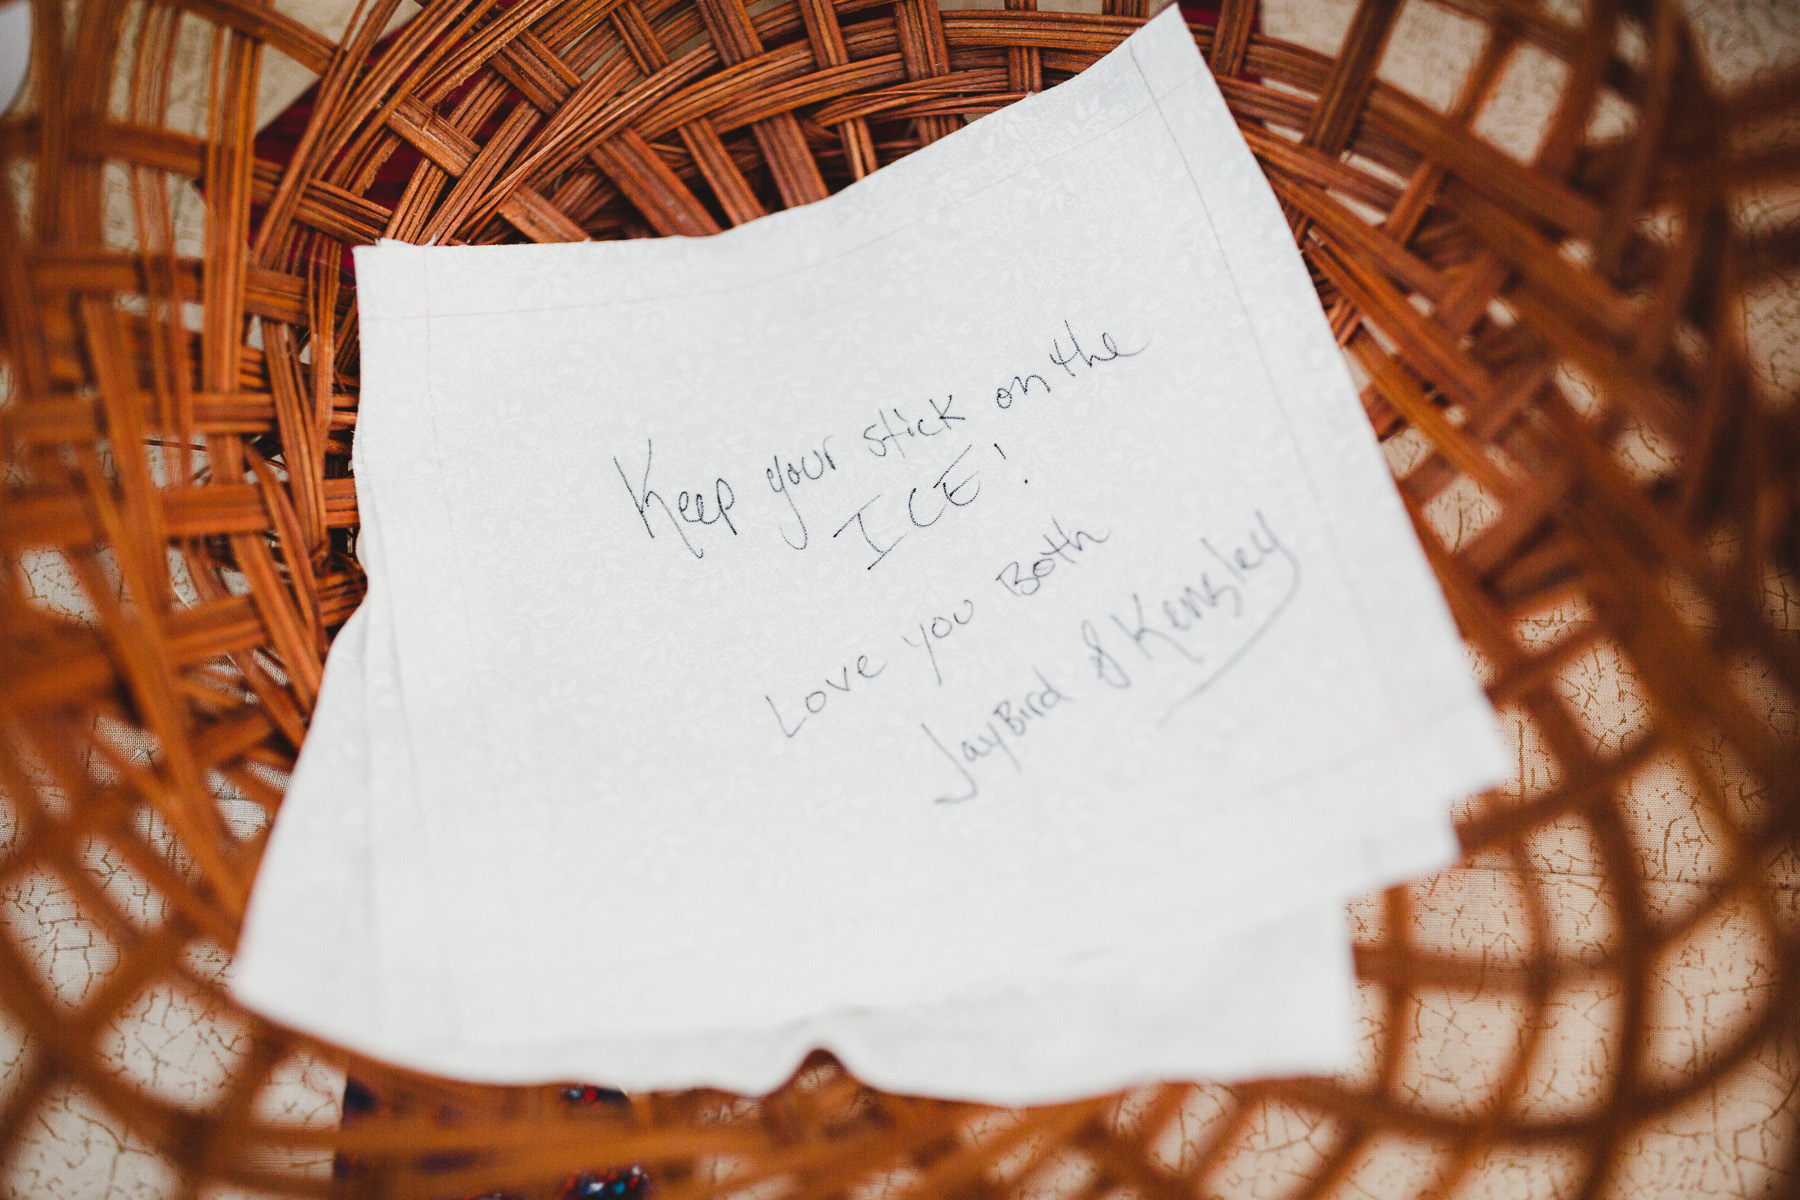 Keep your stick on the
ICE!
Love you Both
JayBird & Kensley